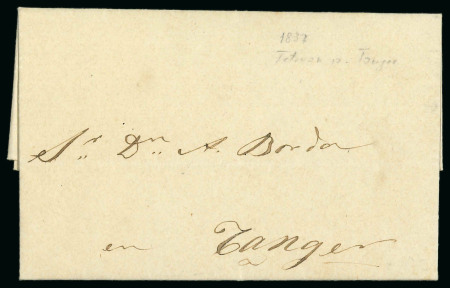 1838
Tetuan n. Tanger
Sr. Dn. A. Borda
en Tanger